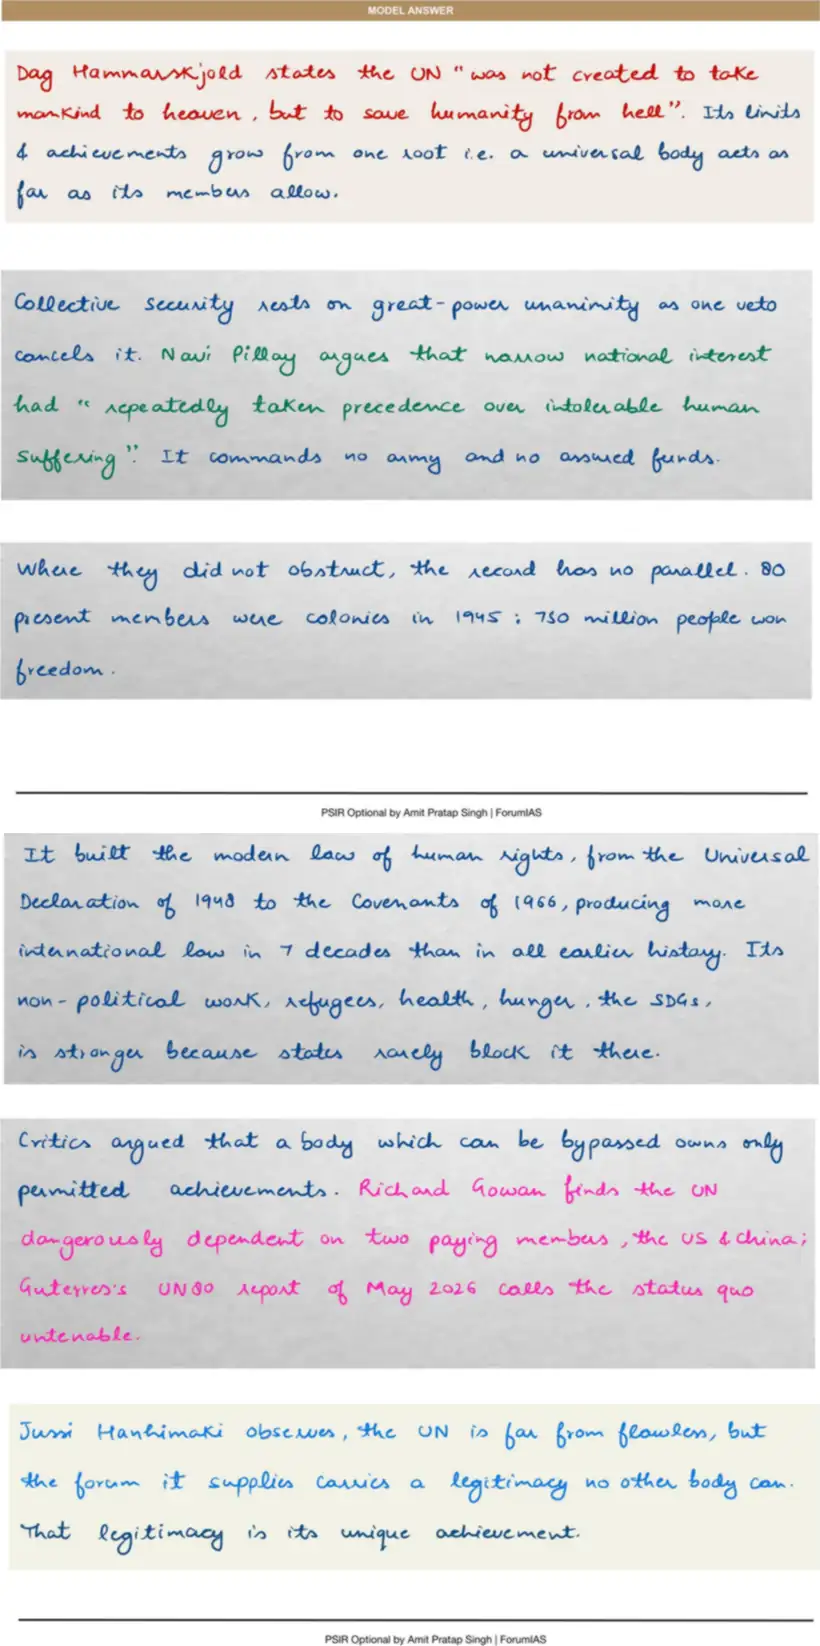 MODEL ANSWER
Dag Hammarskjold states the UN "was not created to take
mankind to heaven, but to save humanity from hell". Its limits
& achievements grow from one root i.e. a universal body acts as
far as its members allow.
Collective security rests on great-power unanimity as one veto
cancels it. Navi Pillay argues that narrow national interest
had "repeatedly taken precedence over intolerable human
suffering". It commands no army and no assured funds.
Where they did not obstruct, the record has no parallel. 80
present members were colonies in 1945; 750 million people won
freedom.
PSIR Optional by Amit Pratap Singh | ForumIAS
It built the modern law of human rights, from the Universal
Declaration of 1948 to the Covenants of 1966, producing more
international law in 7 decades than in all earlier history. Its
non-political work, refugees, health, hunger, the SDGs,
is stronger because states rarely block it there.
Critics argued that a body which can be bypassed owns only
permitted achievements. Richard Gowan finds the UN
dangerously dependent on two paying members, the US & China;
Guterres's UN80 report of May 2026 calls the status quo
untenable.
Jussi Hanhimaki observes, the UN is far from flawless, but
the forum it supplies carries a legitimacy no other body can.
That legitimacy is its unique achievement.
PSIR Optional by Amit Pratap Singh | ForumIAS